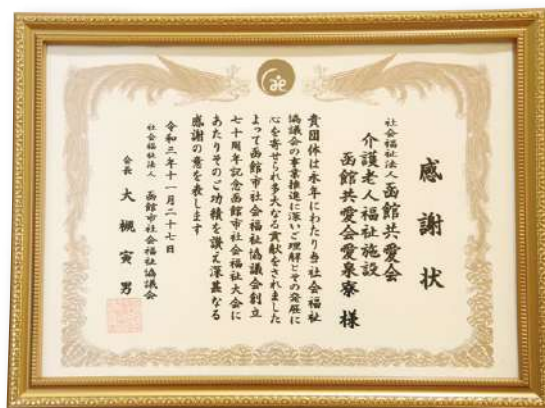 感謝状
社会福祉法人 函館共愛会
介護老人福祉施設
函館共愛会愛泉寮 様
貴団体は永年にわたり当社会福祉
協議会の事業推進に深いご理解とその発展に
心を寄せられ多大なる貢献をされました
よって函館市社会福祉協議会創立
七十周年記念函館市社会福祉大会に
あたりそのご功績を讃え深甚なる
感謝の意を表します
令和三年十一月二十七日
社会福祉法人 函館市社会福祉協議会
会長 大槻寅男